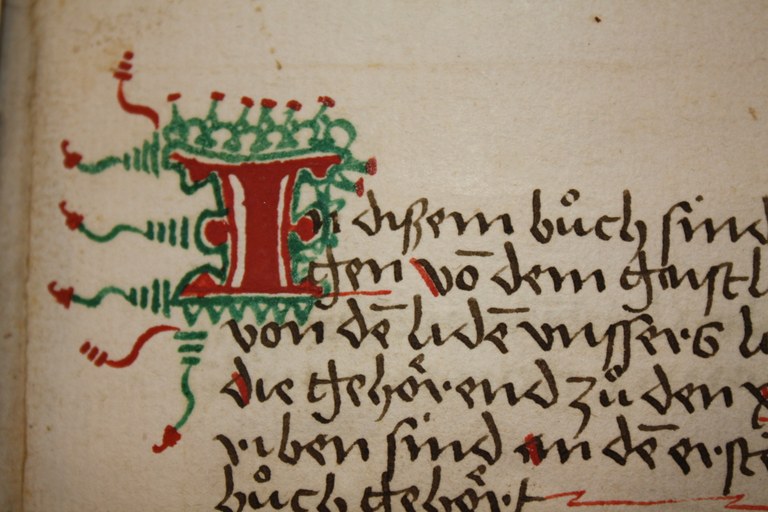 In dißem bůch sind
gen vō dem geistl
von dē lidē vnssers l
die gehörend zů den x
riben sind an dē erste
bůch gehört